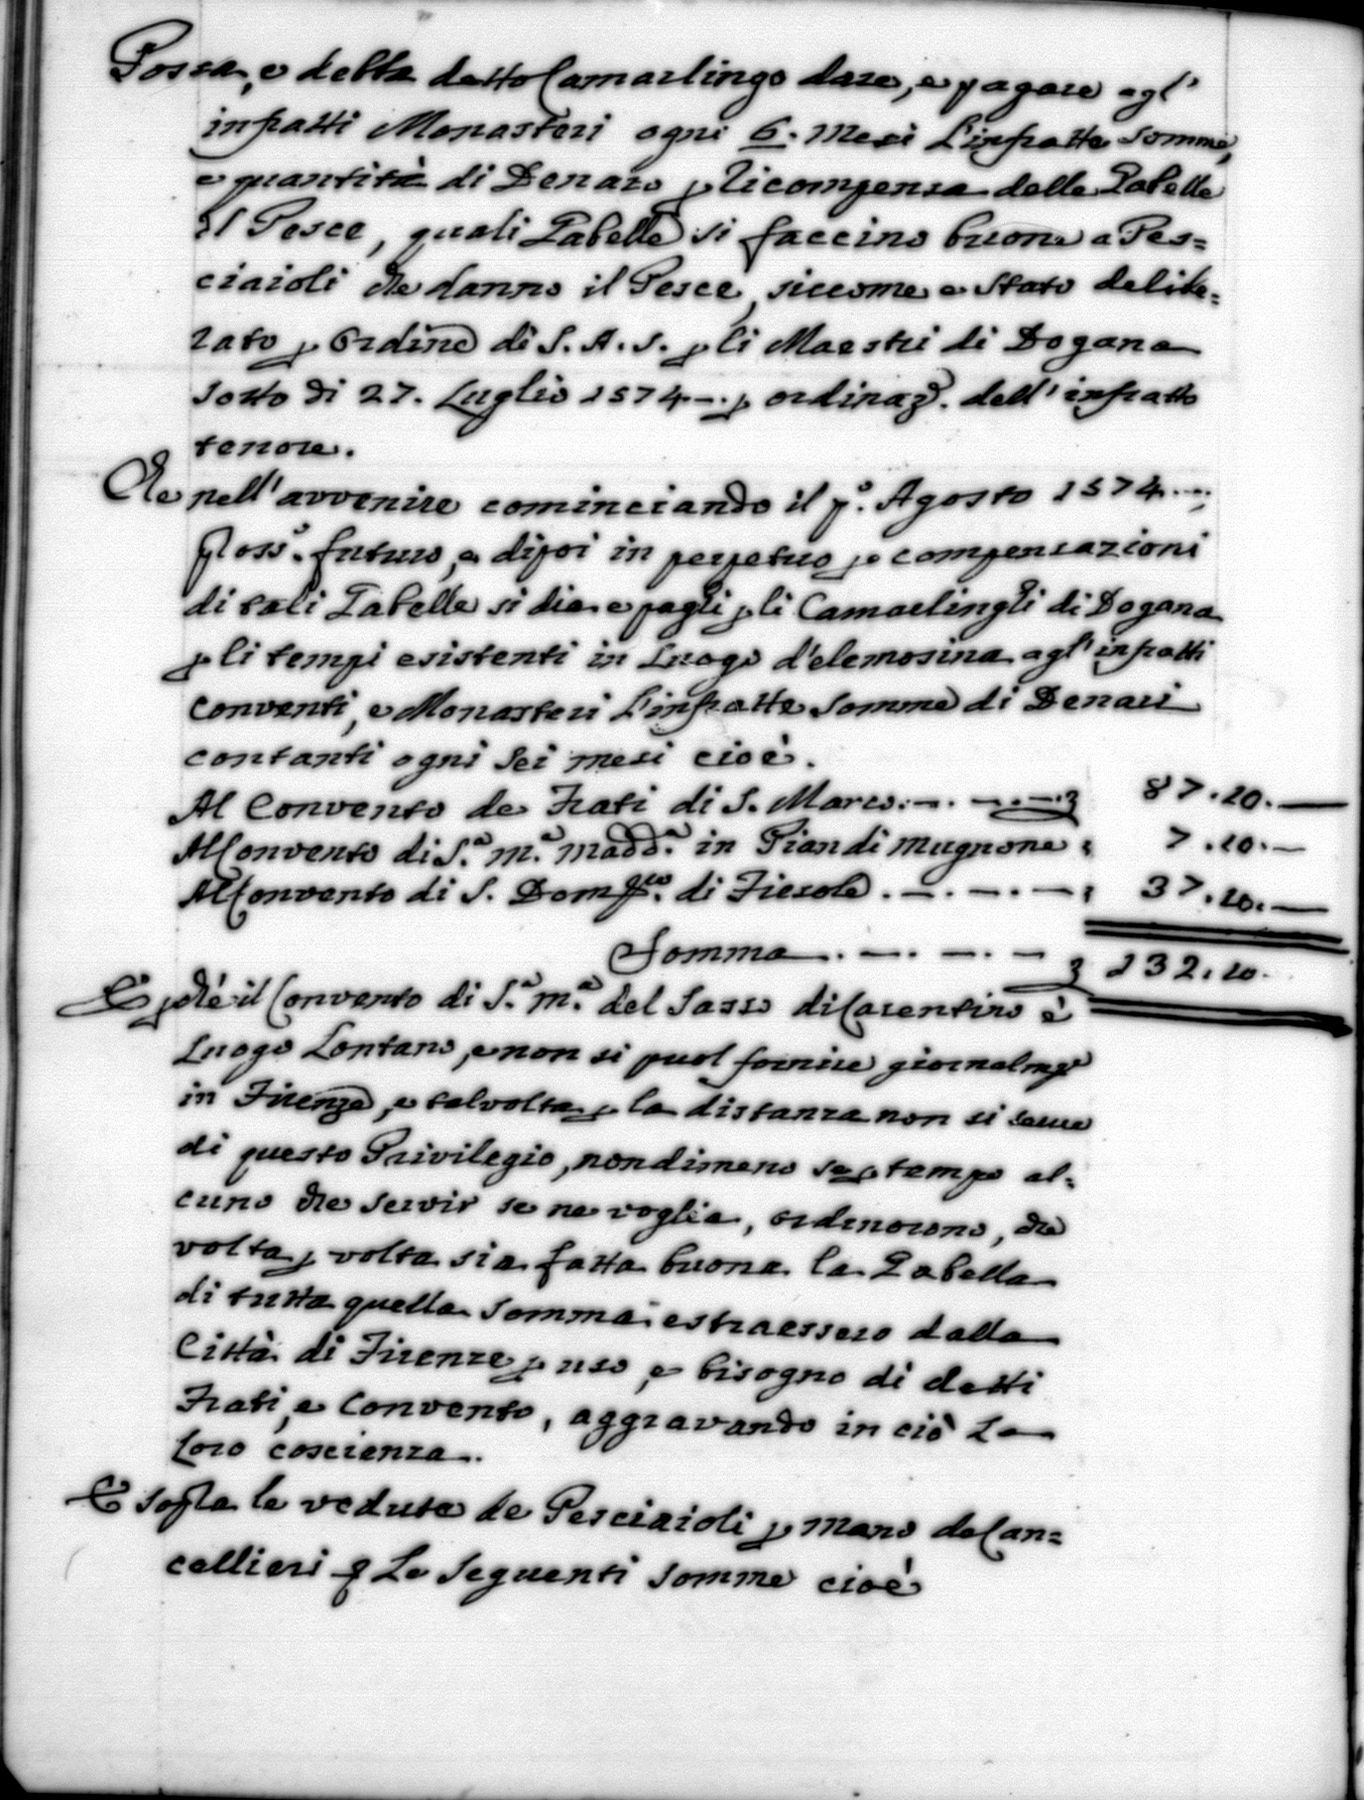 Possa, e debba detto Camarlingo dare, e pagare agl'
infratti Monasteri ogni 6. Mesi l'infratte Somme,
e quantità di Denaro p ricompensa delle Gabelle
il Pesce, quali Gabelle si faccino buone a Pes=
ciaioli che danno il Pesce, siccome e stato delibe=
rato p Ordine di S. A. S. p li Maestri di Dogana
sotto dì 27. Luglio 1574 -. p ordinaz.e dell' infratto
tenore.
Che nell'avvenire cominciando il p.o Agosto 1574 ...
pross.o futuro, e dipoi in perpetuo p compensazioni
di tali Gabelle si dia e paghi p li Camarlinghi di Dogana
p li tempi esistenti in Luogo d'elemosina agl' infratti
Conventi, e Monasteri l'infratte Somme di Denari
contanti ogni sei mesi cioè.
Al Convento de Frati di S. Marco. -. -. -. 87.10. —
Al Convento di S.a M.a Madd.a in Pian di Mugnone : 7.10. —
Al Convento di S. Dom.co di Fiesole. -. -. - : 37.10. —
Somma. -. -. - 132.10.
E p chè il Convento di S.a M.a del Sasso di Casentino è
Luogo Lontano, e non si puol fornire giornalm.e
in Firenze, e talvolta p la distanza non si serve
di questo Privilegio, nondimeno se p tempo al=
cuno che servir se ne voglia, ordinorono, che
volta p volta sia fatta buona la Gabella
di tutta quella Somma estraessero dalla
Città di Firenze p uso, e bisogno di detti
Frati, e Convento, aggravando in ciò La
Loro coscienza.
E sopra le vedute de Pesciaioli p mano de Can=
cellieri Le Seguenti Somme cioè